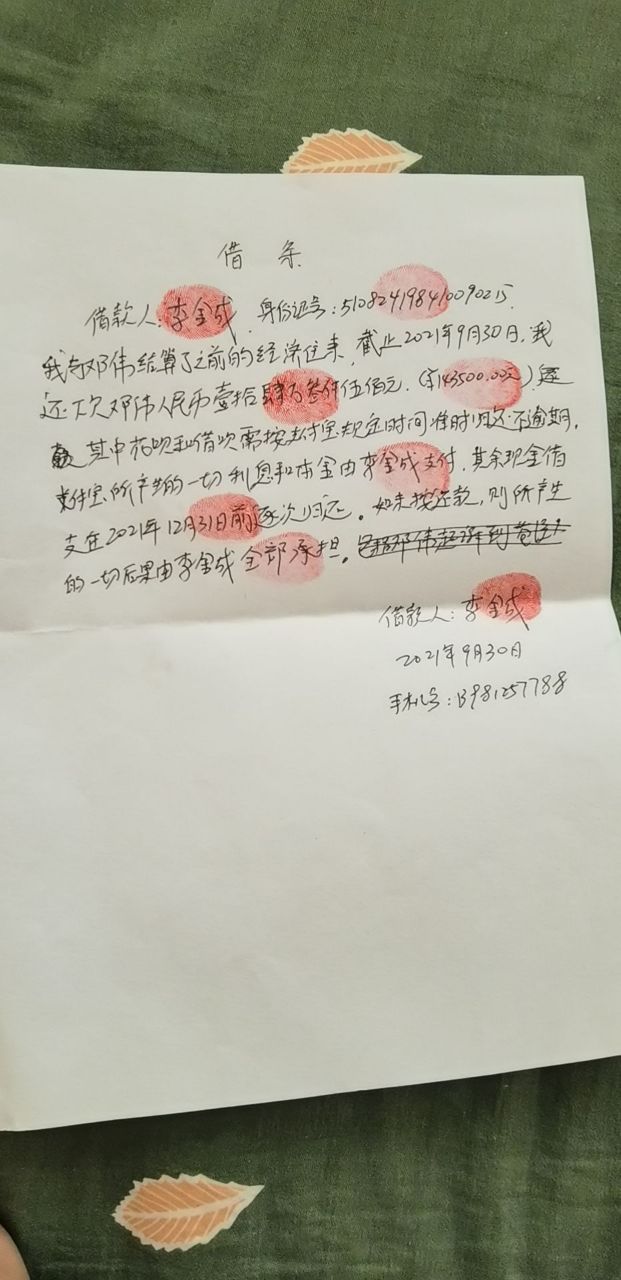 借条
借款人:李金成,身份证号:510824198410090215.
我与邓伟结算了之前的经济往来,截止2021年9月30日,我
还欠邓伟人民币壹拾肆万叁仟伍佰元.(¥143500.00元)
其中花呗和借呗需按支付宝规定时间准时归还不逾期,
支付宝所产生的一切利息和本金由李金成支付.其余现金借
支在2021年12月31日前逐次归还。如未按还款,则所产生
的一切后果由李金成全部承担。
借款人:李金成
2021年9月30日
手机号:13981257788